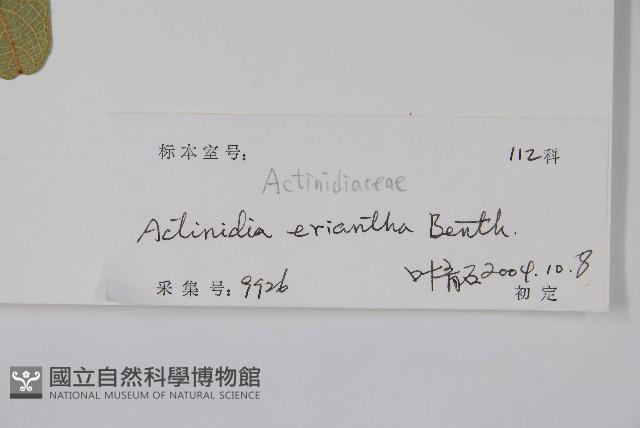 标本室号: 112科
Actinidiaceae
Actinidia eriantha Benth.
采集号: 9926 叶育石 2004.10.8
初定
國立自然科學博物館
NATIONAL MUSEUM OF NATURAL SCIENCE